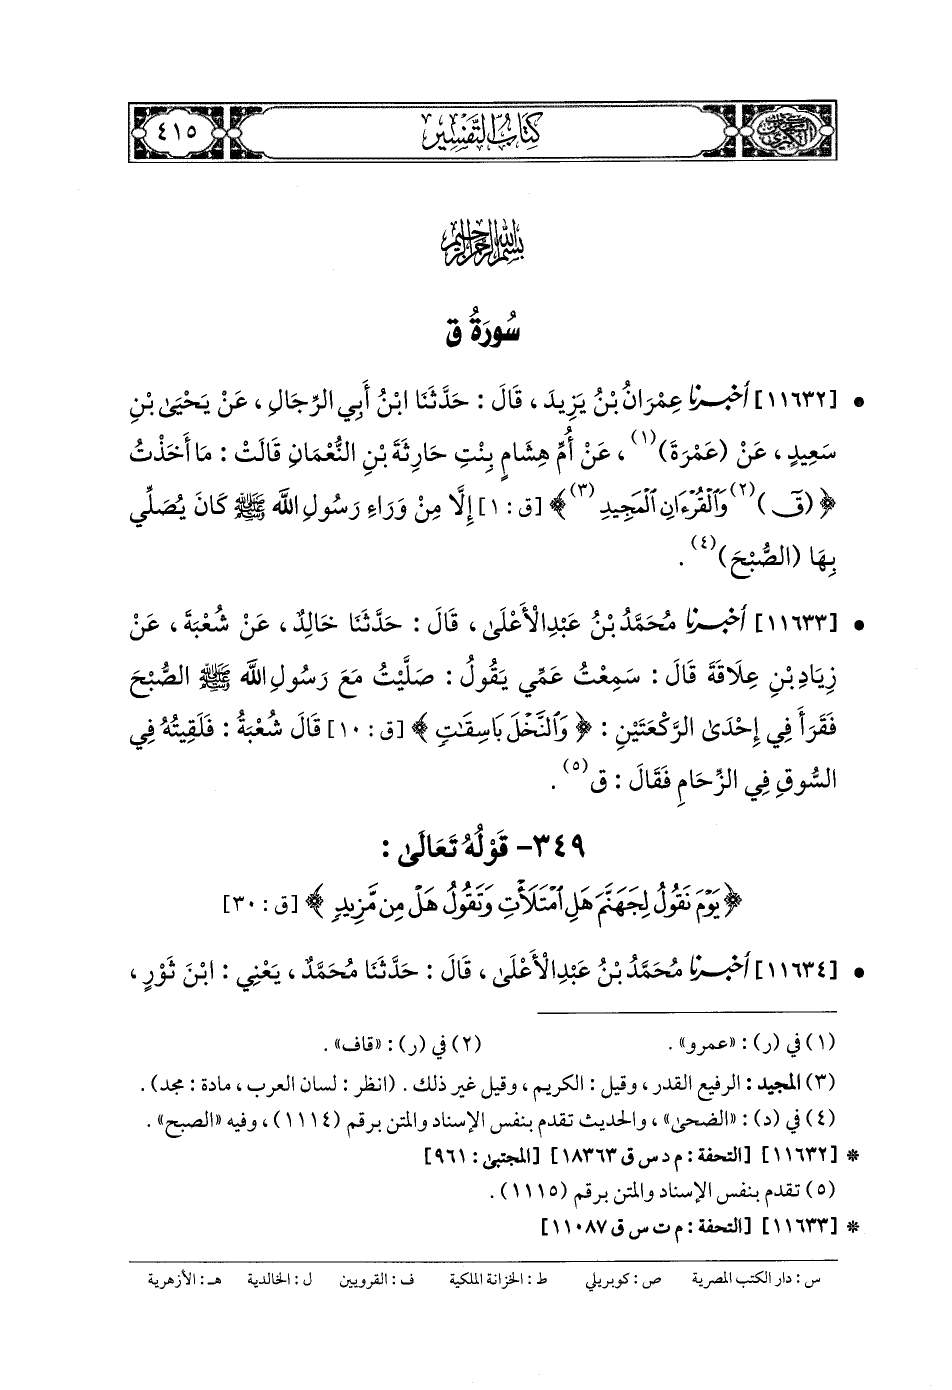 كتاب التفسير ٤١٥
بسم الله الرحمن الرحيم
سُورَةُ ق
• [١١٦٣٢] أخبرنا عِمْرَانُ بْنُ يَزِيدَ، قَالَ: حَدَّثَنَا ابْنُ أَبِي الرِّجَالِ، عَنْ يَحْيَىٰ بْنِ
سَعِيدٍ، عَنْ (عَمْرَةَ)(١)، عَنْ أُمِّ هِشَامٍ بِنْتِ حَارِثَةَ بْنِ النُّعْمَانِ قَالَتْ: مَا أَخَذْتُ
﴿(قٓ)(٢) وَٱلْقُرْءَانِ ٱلْمَجِيدِ(٣)﴾ [ق: ١] إِلَّا مِنْ وَرَاءِ رَسُولِ اللَّهِ ﷺ كَانَ يُصَلِّي
بِهَا (الصُّبْحَ)(٤).
• [١١٦٣٣] أخبرنا مُحَمَّدُ بْنُ عَبْدِ الْأَعْلَىٰ، قَالَ: حَدَّثَنَا خَالِدٌ، عَنْ شُعْبَةَ، عَنْ
زِيَادِ بْنِ عِلَاقَةَ قَالَ: سَمِعْتُ عَمِّي يَقُولُ: صَلَّيْتُ مَعَ رَسُولِ اللَّهِ ﷺ الصُّبْحَ
فَقَرَأَ فِي إِحْدَىٰ الرَّكْعَتَيْنِ: ﴿وَٱلنَّخْلَ بَاسِقَٰتٍ﴾ [ق: ١٠] قَالَ شُعْبَةُ: فَلَقِيتُهُ فِي
السُّوقِ فِي الزِّحَامِ فَقَالَ: ق(٥).
٣٤٩- قَوْلُهُ تَعَالَىٰ:
﴿يَوْمَ نَقُولُ لِجَهَنَّمَ هَلِ ٱمْتَلَأْتِ وَتَقُولُ هَلْ مِن مَّزِيدٍ﴾ [ق: ٣٠]
• [١١٦٣٤] أخبرنا مُحَمَّدُ بْنُ عَبْدِ الْأَعْلَىٰ، قَالَ: حَدَّثَنَا مُحَمَّدٌ، يَعْنِي: ابْنَ ثَوْرٍ،
(١) في (ر): «عمرو». (٢) في (ر): «قاف».
(٣) المجيد: الرفيع القدر، وقيل: الكريم، وقيل غير ذلك. (انظر: لسان العرب، مادة: مجد).
(٤) في (د): «الضحى»، والحديث تقدم بنفس الإسناد والمتن برقم (١١١٤)، وفيه «الصبح».
* [١١٦٣٢] [التحفة: م د س ق ١٨٣٦٣] [المجتبى: ٩٦١]
(٥) تقدم بنفس الإسناد والمتن برقم (١١١٥).
* [١١٦٣٣] [التحفة: م ت س ق ١١٠٨٧]
س: دار الكتب المصرية ص: كوبريلي ط: الخزانة الملكية ف: القرويين ل: الخالدية هـ: الأزهرية